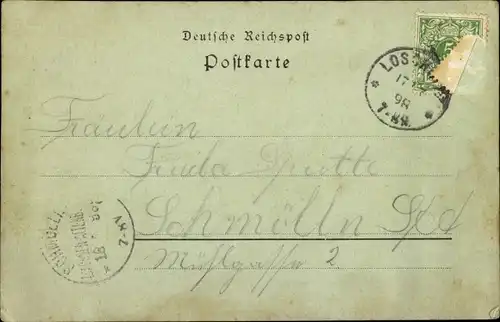 Deutsche Reichspost
Postkarte
5
LOSS
17
98
7-8N.
Fräulein
Frida
Schmölln S/A
Mühlgasse 2
SCHMÖLLN
18
7-8V